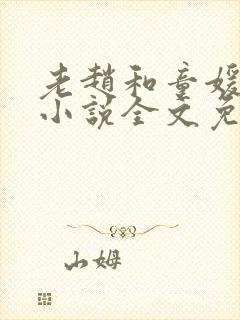 老趙和童媛
小說全文免
山姆